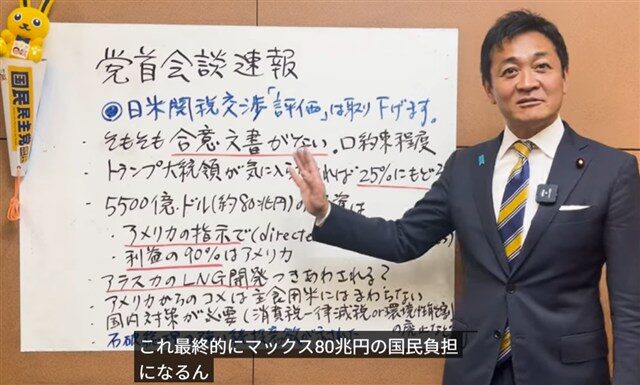 国民民主党
党首会談速報
◎日米関税交渉「評価」は取り下げます。
・そもそも合意文書がない。口約束程度
・トランプ大統領が気に入
れば25%にもど
・5500億ドル(約80兆円)の
は
・アメリカの指示で(direct
・利益の90%はアメリカ
・アラスカのLNG開発つきあわされる?
・アメリカからのコメは主食用米にはまわらない
・国内対策が必要(消費税一律減税or環境性能割
の廃止など)
これ最終的にマックス80兆円の国民負担
になるん